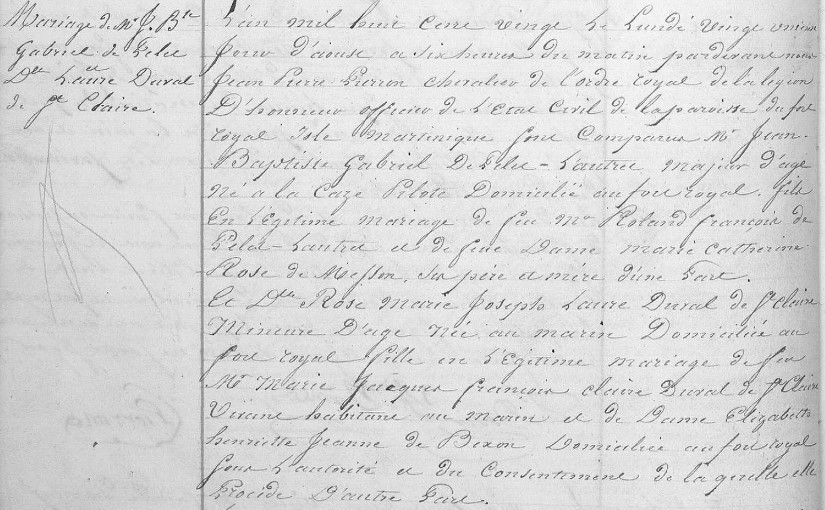 Mariage de Mr J. Bte
Gabriel de Pelet
Dlle Laure Duval
de Ste Claire.
L'an mil huit cent vingt Le Lundi vingt unieme
jour d'aoust a six heures du matin pardevant nous
Jean Pierre chevalier de l'ordre royal de la légion
D'honneur officier de L'Etat Civil de la paroisse du fort
royal Isle Martinique sont Comparus Mr Jean-
Baptiste Gabriel De Pelet-Lautrec Majeur d'age
Né a la Caze Pilote Domicilié au fort royal, fils
En Légitime mariage de feu Mr Roland françois de
Pelet-Lautrec et de feue Dame marie Catherine
Rose de, ses père et mère d'une Part.
Et Dlle Rose Marie Joseph Laure Duval de Ste Claire
Mineure D'age Née au marin Domiciliée au
fort royal fille en Légitime mariage de feu
Mr Marie Jacques françois claire Duval de Ste Claire
Vivant habitant au marin et de Dame Elizabeth
henriette Jeanne de Domiciliée au fort royal
sous L'autorité et du Consentement de laquelle elle
Procède D'autre Part.